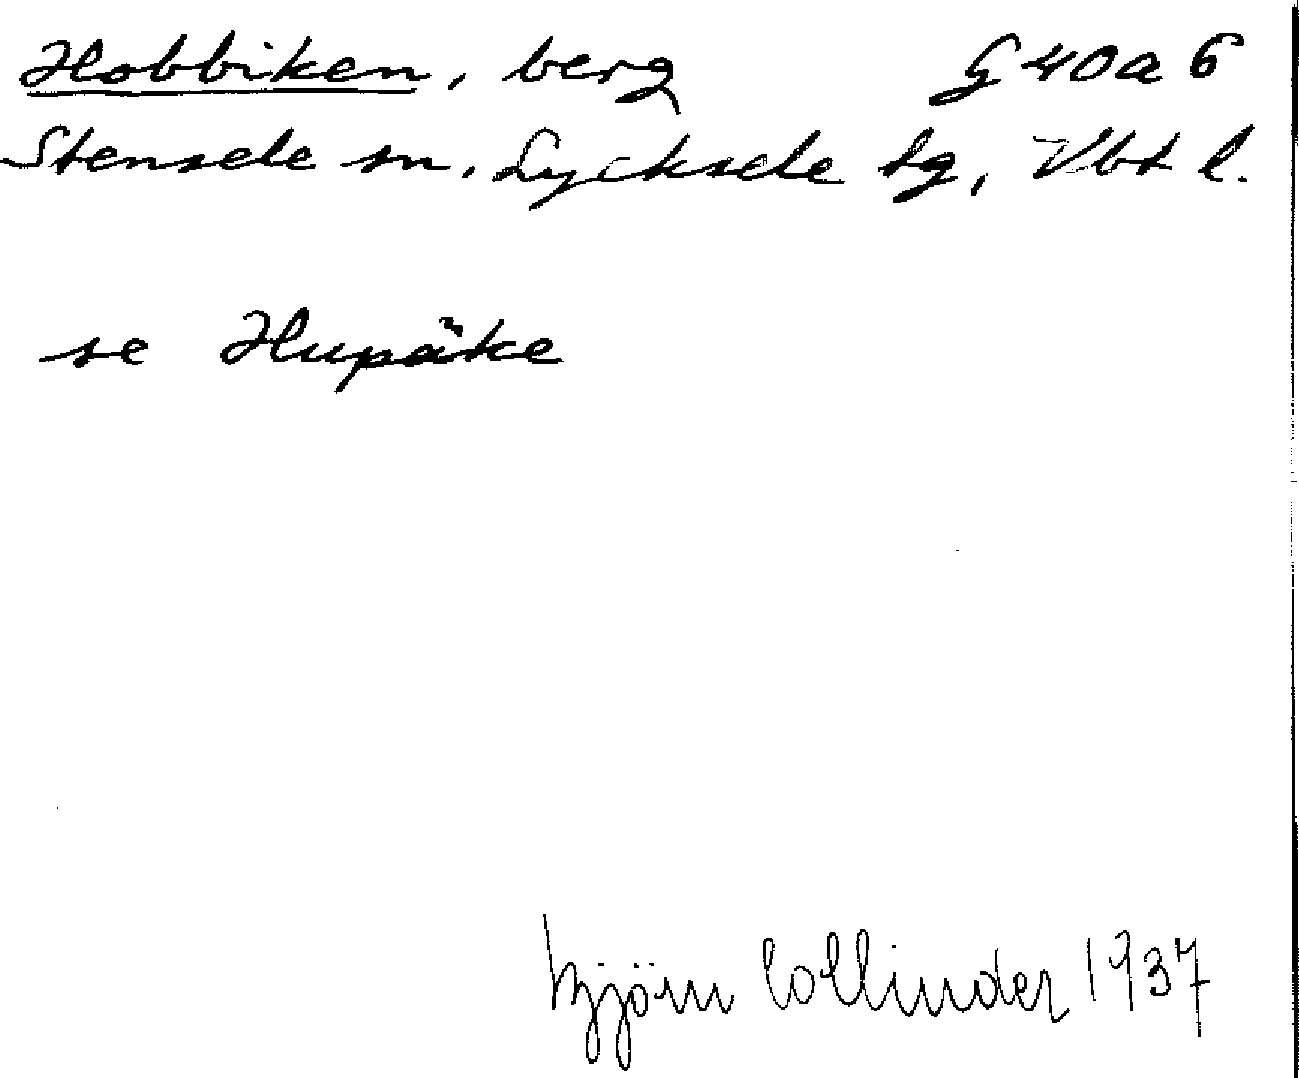 Hobbiken, berg G 40 a 6
Stensele sn. Lycksele lg, Vbt l.
se Hupäke
björn collinder 1937